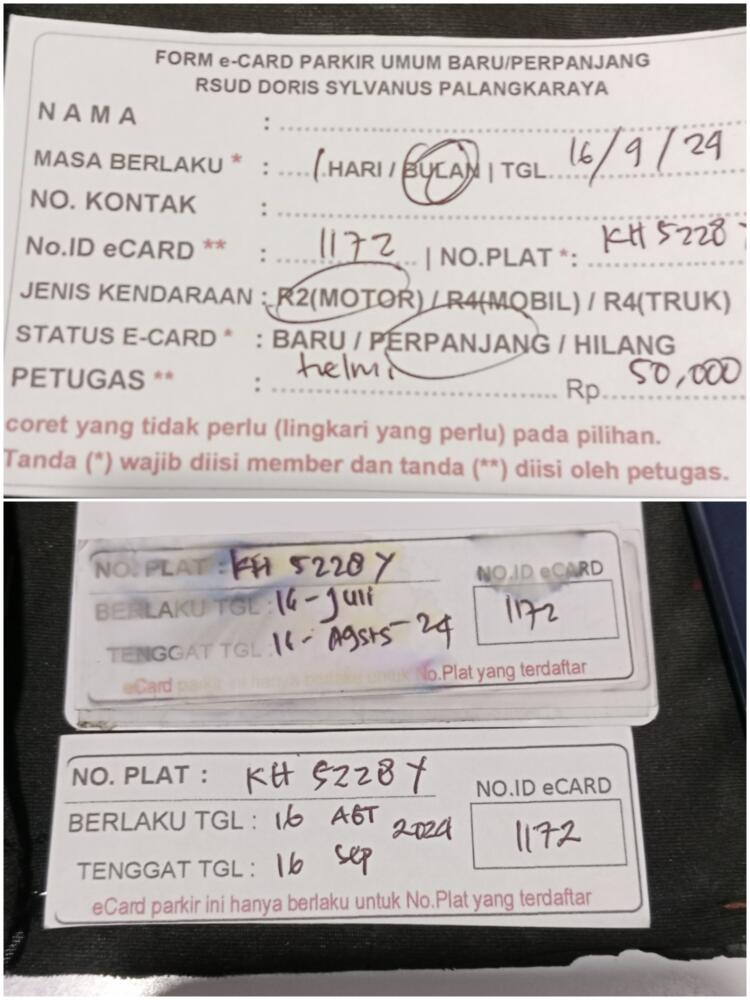 FORM e-CARD PARKIR UMUM BARU/PERPANJANG
RSUD DORIS SYLVANUS PALANGKARAYA
NAMA :
MASA BERLAKU * : 1 HARI / BULAN | TGL 16/9/24
NO. KONTAK :
No.ID eCARD ** : 1172 | NO.PLAT *: KH 5228
JENIS KENDARAAN : R2(MOTOR) / R4(MOBIL) / R4(TRUK)
STATUS E-CARD * : BARU / PERPANJANG / HILANG
PETUGAS ** : helmi Rp 50,000
coret yang tidak perlu (lingkari yang perlu) pada pilihan.
Tanda (*) wajib diisi member dan tanda (**) diisi oleh petugas.
NO. PLAT : KH 5228 Y
NO.ID eCARD
BERLAKU TGL : 16 - Juli
1172
TENGGAT TGL : 16 - Agsts - 24
eCard parkir ini hanya berlaku untuk No.Plat yang terdaftar
NO. PLAT : KH 5228 Y
NO.ID eCARD
BERLAKU TGL : 16 AGT 2024
1172
TENGGAT TGL : 16 Sep
eCard parkir ini hanya berlaku untuk No.Plat yang terdaftar